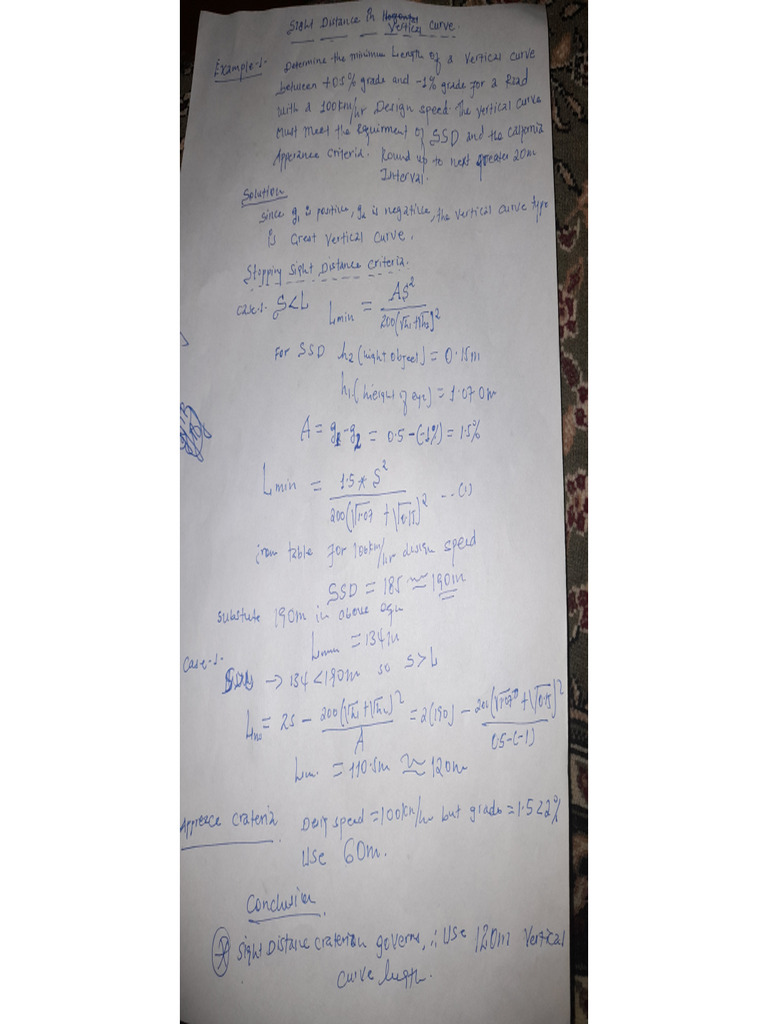 Sight Distance in Vertical Curve.
Example-1- Determine the minimum Length of a Vertical curve
between +0.5% grade and -1% grade for a Road
with a 100km/hr Design speed. The vertical curve
must meet the Equirment of SSD and the California
Apperance criteria. Round up to next greater 20m
Interval.
Solution
Since g1 is positive, g2 is negative, the vertical curve type
is Crest Vertical Curve.
Stopping Sight Distance criteria.
Case-1- S<L Lmin = AS²/200(√h1+√h2)²
For SSD h2 (hight object) = 0.15m
h1 (hieght of eye) = 1.070m
A = g1-g2 = 0.5-(-1%) = 1.5%
Lmin = 1.5*S²/200(√1.07 + √0.15)² --(1)
from table for 100km/hr design speed
SSD = 185 ≈ 190m
substute 190m in above eqn
Lmin = 134m
Case-1-
→ 134<190m so S>L
Lmin = 2S - 200(√h1+√h2)²/A = 2(190) - 200(√1.070 + √0.15)²/0.5-(-1)
Lm. = 110.5m ≈ 120m
Design speed = 100km/hr but grade = 1.5<2%
Use 60m.
Conclusion
* Sight Distance craterion governs, ∴ Use 120m Vertical
curve length.